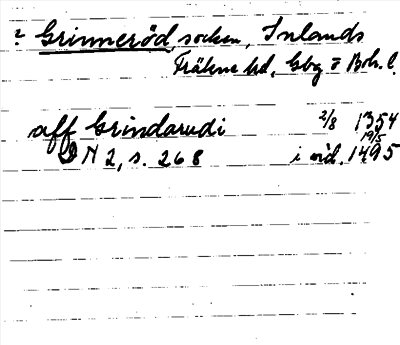 ? Grinneröd, socken, Inlands
Fräkne hd, Gbg o Boh. l.
aff Grindarudi 2/8 1354
19/5
DN 2, s. 268 i vid. 1495